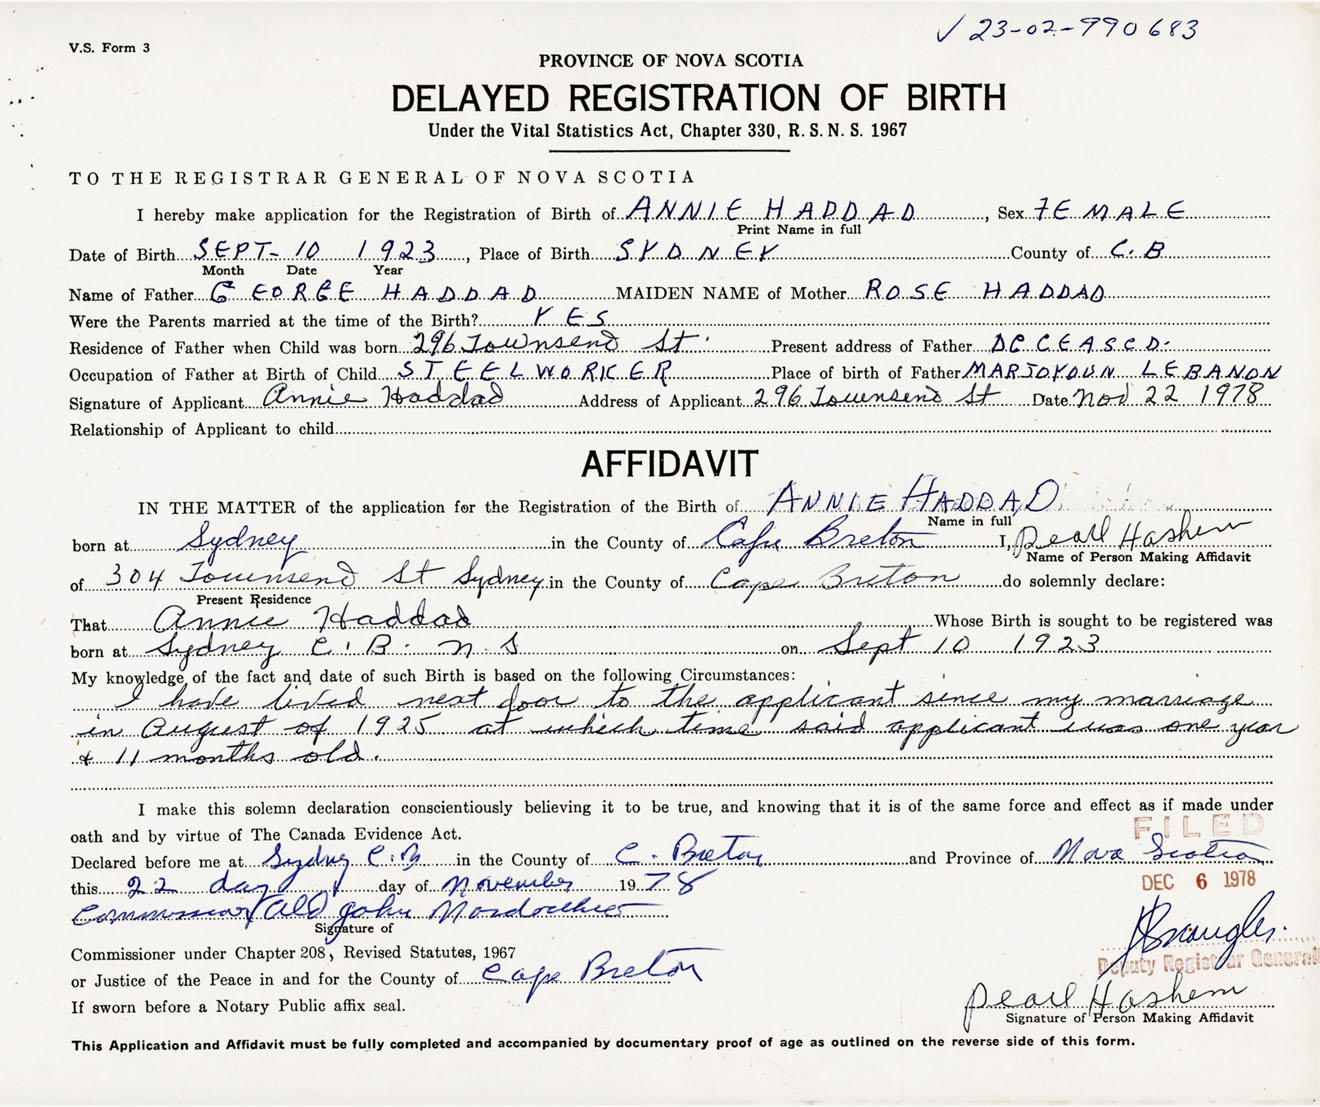 ✓ 23-02-990683
V.S. Form 3
PROVINCE OF NOVA SCOTIA
DELAYED REGISTRATION OF BIRTH
Under the Vital Statistics Act, Chapter 330, R.S.N.S. 1967
TO THE REGISTRAR GENERAL OF NOVA SCOTIA
I hereby make application for the Registration of Birth of ANNIE HADDAD, Sex FEMALE
Print Name in full
Date of Birth SEPT- 10 1923, Place of Birth SYDNEY County of C.B
Month Date Year
Name of Father GEORGE HADDAD MAIDEN NAME of Mother ROSE HADDAD
Were the Parents married at the time of the Birth? YES
Residence of Father when Child was born 296 Townsend St. Present address of Father DECEASED.
Occupation of Father at Birth of Child STEELWORKER Place of birth of Father MARJOYOUN LEBANON
Signature of Applicant Annie Haddad Address of Applicant 296 Townsend St Date Nov 22 1978
Relationship of Applicant to child
AFFIDAVIT
IN THE MATTER of the application for the Registration of the Birth of ANNIE HADDAD
Name in full
born at Sydney in the County of Cape Breton I, Pearl Hashem
Name of Person Making Affidavit
of 304 Townsend St Sydney in the County of Cape Breton do solemnly declare:
Present Residence
That Annie Haddad Whose Birth is sought to be registered was
born at Sydney C.B. N.S on Sept 10 1923
My knowledge of the fact and date of such Birth is based on the following Circumstances:
I have lived next door to the applicant since my marriage
in August of 1925 at which time said applicant was one year
& 11 months old.
I make this solemn declaration conscientiously believing it to be true, and knowing that it is of the same force and effect as if made under
oath and by virtue of The Canada Evidence Act.
FILED
Declared before me at Sydney C.B in the County of C. Breton and Province of Nova Scotia
this 22 day day of November 1978
DEC 6 1978
John
Signature of
Commissioner under Chapter 208, Revised Statutes, 1967
Deputy Registrar General
or Justice of the Peace in and for the County of Cape Breton
If sworn before a Notary Public affix seal.
Pearl Hashem
Signature of Person Making Affidavit
This Application and Affidavit must be fully completed and accompanied by documentary proof of age as outlined on the reverse side of this form.